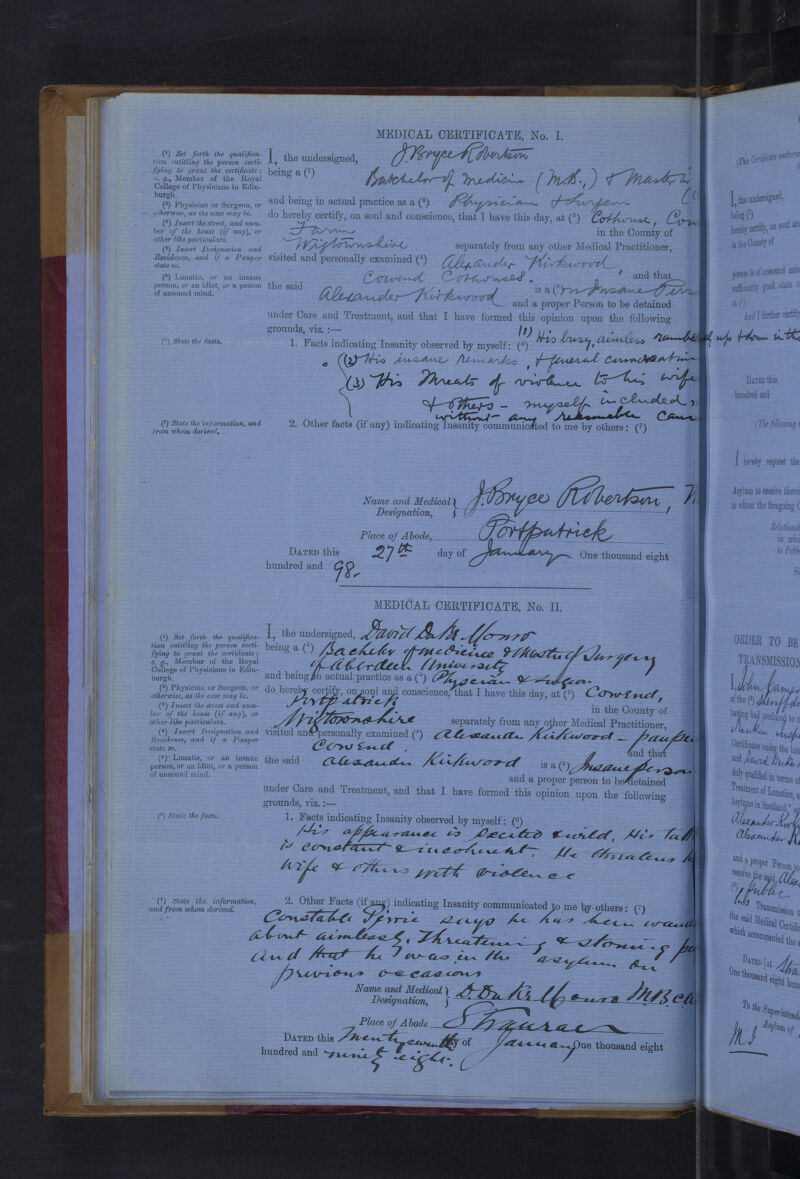 MEDICAL CERTIFICATE, No. I.
(¹) Set forth the qualifica-
tion entitling the person certi-
fying to grant the certificate;
e. g., Member of the Royal
College of Physicians in Edin-
burgh.
(²) Physician or Surgeon, or
otherwise, as the case may be.
(³) Insert the street, and num-
ber of the house (if any), or
other like particulars.
(⁴) Insert Designation and
Residence, and if a Pauper
state so.
(⁵) Lunatic, or an insane
person, or an idiot, or a person
of unsound mind.
I, the undersigned, J. Bryce Robertson
being a (¹) Batchelor of Medicin (M.B.,) & Master in
and being in actual practice as a (²) Physician & Surgeon
do hereby certify, on soul and conscience, that I have this day, at (³) Cothouse, Cow
Farm in the County of
Wigtownshire separately from any other Medical Practitioner,
visited and personally examined (⁴) Alexander Kirkwood,
Cowend Cothouses. and that
the said Alexander Kirkwood is a (⁵) Insane Pers
and a proper Person to be detained
under Care and Treatment, and that I have formed this opinion upon the following
grounds, viz. :—
(⁶) State the facts.
1. Facts indicating Insanity observed by myself: (⁶) (1) His busy, aimless up & down in the
(2) His insane remarks, & general
(3) His Threats of violence to his wife
& others - myself included,
without any reasonable caus
(⁷) State the information, and
from whom derived.
2. Other facts (if any) indicating Insanity communicated to me by others: (⁷)
Name and Medical Designation, J. Bryce Robertson,
Place of Abode, Portpatrick
DATED this 27th day of January One thousand eight
hundred and 98.
MEDICAL CERTIFICATE, No. II.
(¹) Set forth the qualifica-
tion entitling the person certi-
fying to grant the certificate;
e. g., Member of the Royal
College of Physicians in Edin-
burgh.
(²) Physician or Surgeon, or
otherwise, as the case may be.
(³) Insert the street and num-
ber of the house (if any), or
other like particulars.
(⁴) Insert Designation and
Residence, and if a Pauper
state so.
(⁵) Lunatic, or an insane
person, or an idiot, or a person
of unsound mind.
I, the undersigned, David Duke Monro
being a (¹) Bachelor of medicine & Master of Surgery
of Aberdeen University
and being in actual practice as a (²) Physician & surgeon
do hereby certify, on soul and conscience, that I have this day, at (³) Cowend,
Portpatrick in the County of
Wigtownshire separately from any other Medical Practitioner,
visited and personally examined (⁴) Alexander Kirkwood - pauper
Cowend and that
the said Alexander Kirkwood is a (⁵) Insane person
and a proper person to be detained
under Care and Treatment, and that I have formed this opinion upon the following
grounds, viz. :—
(⁶) State the facts.
1. Facts indicating Insanity observed by myself: (⁶)
His appearance is excited & wild. His talk
is constant & incoherent. He threatens h
wife & others with violence
(⁷) State the information,
and from whom derived.
2. Other Facts (if any) indicating Insanity communicated to me by others: (⁷)
Constable says he has been wand
about aimlessly. Threatening & stoning pe
and that he was in the asylum on
previous occasions
Name and Medical Designation, D. Duke Monro M.B. C.M
Place of Abode Stranraer
DATED this Twenty seventh day of January One thousand eight
hundred and ninety eight.
(The Certificate author
I, the undersigned,
being (¹)
hereby certify, on soul an
in the County of
person is of unsound min
sufficiently good state o
at (²)
And I further certify
DATED this
hundred and
(The following
I hereby request the
Asylum to receive therei
to whom the foregoing C
Relations
in whi
to Patie
ORDER TO BE
TRANSMISSION
I, John James
of the (¹)
having had produced to
Certificates under the han
and David Duke
duly qualified in terms o
Treatment of Lunatics, a
Asylums in Scotland,"
Alexander Kirk
Alexander
and a proper Person to
receive the said Alex
Public
his Transmission
the said Medical Certific
which accompanied the
DATED at Stra
One thousand eight hun
To the Superintende
Asylum of